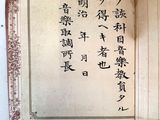 ノ該科目音樂教員タル
ヲ得ヘキ者也
明治 年 月 日
音樂取調所長